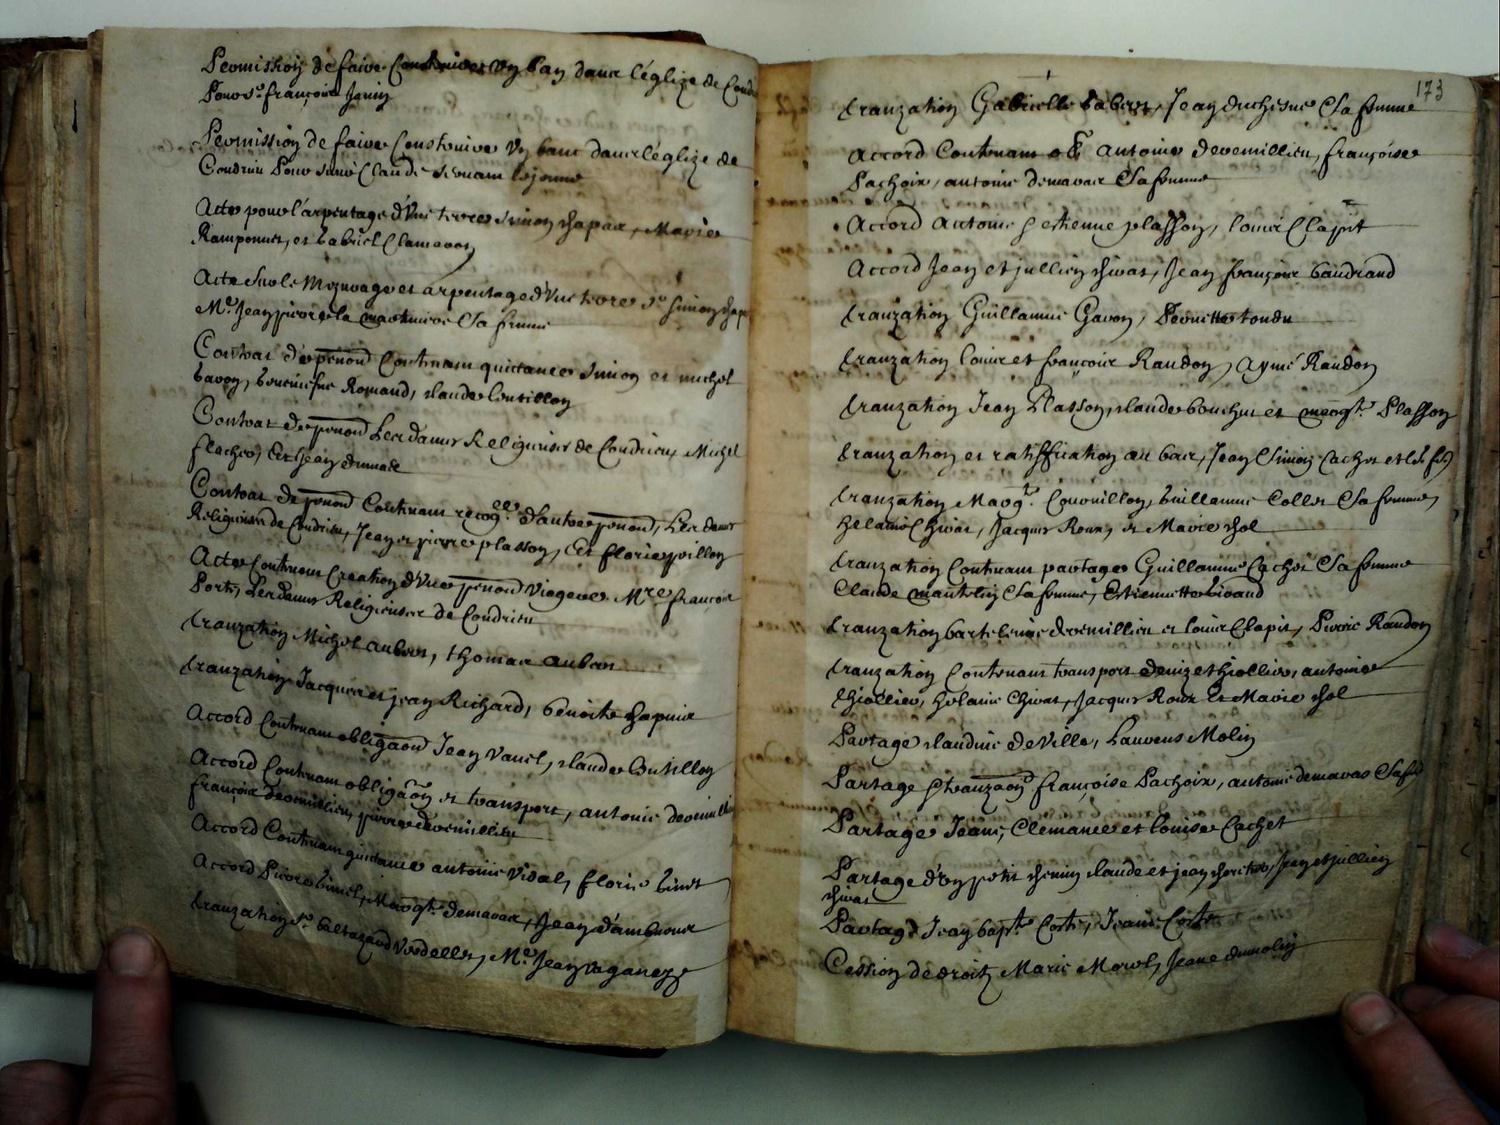 Permission de faire Construire Un ban dans l'églize de Cond
Pour sr. françois Janin
Permission de faire Construire Un banc dans l'églize de
Condrieu Pour Claude Servant le jeune
Acte pour l'arpentage d'Une terre Simon Chapaix, Marie
Ramponnet, et Gabriel Clamaron
Acte Sur le Mezurage et arpentage d'Une terre Sr. Simon Chap
Me. Jean pierre la martiniere & Sa femme
Contrat de penon Contenant quictance Simon et michel
Gavon, Romand, Claude Coutillon
Contrat de penon Les dames Religieuses de Condrieu, Michel
flacher, Et Jean dumas
Contrat de penon Contenant recog.lle d'autre penon, Les dames
Religieuses de Condrieu, Jean et pierre plasson, Et florie pillon
Acte Contenant Creation d'Une penon Viagere Mre. françois
Porte, Les dames Religieuses de Condrieu
tranzation Michel aubert, thomas aubert
tranzation Jacques et jean Richard, benoite Chapuis
Accord Contenant obligaon Jean Vanel, Claude Coutillon
Accord Contenant obligaon et transport, antoine devernillieu
françois devernillieu, pierre devernillieu
Accord Contenant quictance antoine Vidal, florie binet
Accord Pierre binet, Margte. demaras, Jean d'ambroux
tranzation sr. baltazard Verdellet, Me. Jean
173
tranzation Gabrielle Jean duchesne & Sa femme
Accord Contenant antoine devernillieu, françoise
Pachoix, antoine demaras & Sa femme
Accord Antoine & etienne plasson, louis Clapit
Accord Jean et jullien Chivas, Jean françois Gaudrand
tranzation Guillaume Gavon, Pernette tondu
tranzation louis et françois Raudon, aymé Raudon
tranzation Jean Plasson, Claude bouchut et margte. Plasson
tranzation et ratiffication au bas, Jean Simon Cachet et
tranzation Margte. Couvillon, Guillaume Collet & Sa femme,
helaine Chivas, Jacques Roux, et Marie Chol
tranzation Contenant partage Guillaume Cachet & Sa femme
Claude mantelin & Sa femme, Estiennette Giraud
tranzation bartelemie devernillieu et louis Clapit, Pierre Raudon
tranzation Contenant transport denize thiollier, antoine
thiollier, helaine Chivas, Jacques Roux Et Marie Chol
Partage Claudine de Ville, Laurens Molin
Partage & tranzaon françoise Pachoix, antoine demaras
Partage Jeanne, Clemance et louise Cachet
Partage d'Un petit chemin Claude et jean Jean et jullien
Chivas
Partage Jean bapte. Corte, Jeanne Corte
Cession de droits Marie Morel, Jeane dumolin